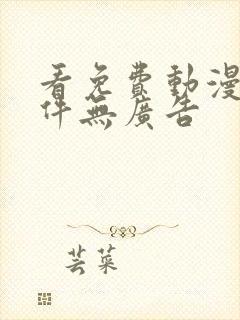 看免費動漫
件無廣告
芸菜